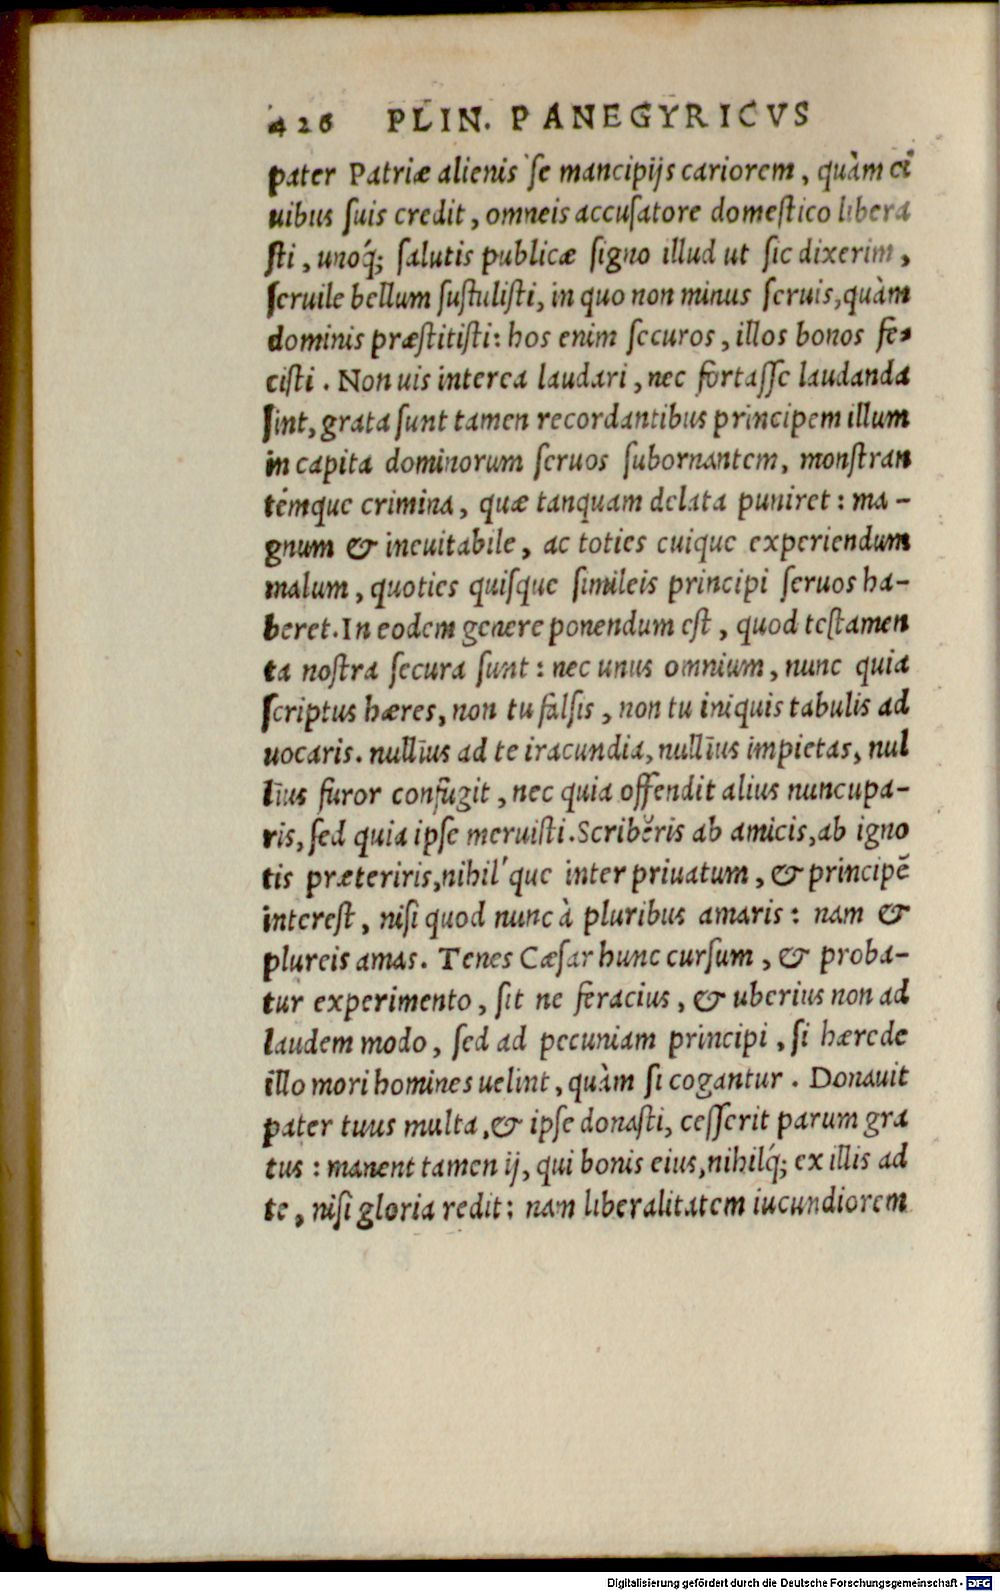 426 PLIN. PANEGYRICVS
pater Patriæ alienis se mancipijs cariorem, quàm ci
uibus suis credit, omneis accusatore domestico libera
sti, unoq́; salutis publicæ signo illud ut sic dixerim,
seruile bellum sustulisti, in quo non minus seruis, quàm
dominis præstitisti: hos enim securos, illos bonos fe-
cisti. Non uis interea laudari, nec fortasse laudanda
sint, grata sunt tamen recordantibus principem illum
in capita dominorum seruos subornantem, monstran
témque crimina, quæ tanquam delata puniret: ma-
gnum & ineuitabile, ac toties cuique experiendum
malum, quoties quisque simileis principi seruos ha-
beret. In eodem genere ponendum est, quod testamen
ta nostra secura sunt: nec unus omnium, nunc quia
scriptus hæres, non tu falsis, non tu iniquis tabulis ad
uocaris. nullīus ad te iracundia, nullīus impietas, nul
līus furor confugit, nec quia offendit alius nuncupa-
ris, sed quia ipse meruisti. Scribĕris ab amicis, ab igno
tis præteriris, nihil'que inter priuatum, & principē
interest, nisi quod nunc à pluribus amaris: nam &
plureis amas. Tenes Cæsar hunc cursum, & proba-
tur experimento, sit ne feracius, & uberius non ad
laudem modo, sed ad pecuniam principi, si hærede
illo mori homines uelint, quàm si cogantur. Donauit
pater tuus multa, & ipse donasti, cesserit parum gra
tus: manent tamen ij, qui bonis eius, nihilq́; ex illis ad
te, nisi gloria redit: nam liberalitatem iucundiorem
Digitalisierung gefördert durch die Deutsche Forschungsgemeinschaft - DFG